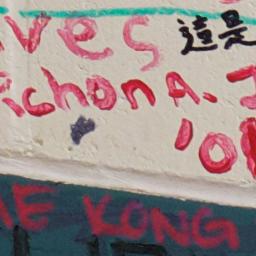 ves 這是
ichon A. J
'01
ME KONG